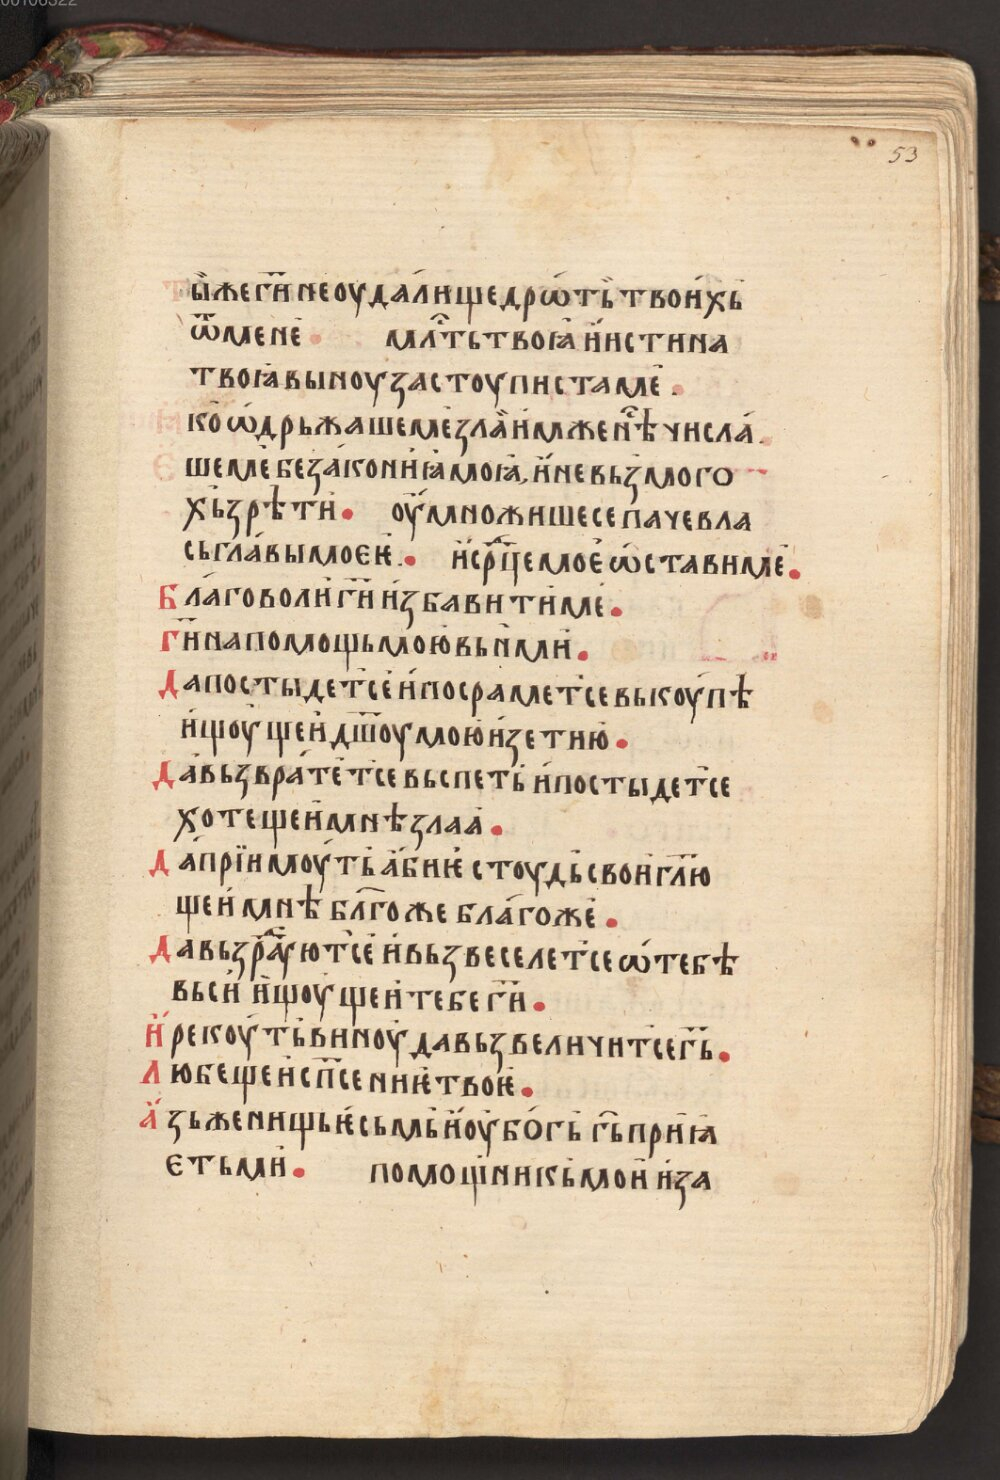 53
Ты̀же гн҃и не оудали щедрѡть твоихь
ѿ мене• млⷭ҇ть твоꙗ и истина
твоꙗ выноу застоуписта ме•
ко ѡдрьжаше ме злаа имже нⷭ҇ѣ числа•
шеме безакониꙗ моꙗ, и не вьзмого
хь зрѣти• оумножише се паче вла
сь главы моѥѥ• и срⷣце мое ѡстави ме•
Благоволи гн҃и избавити ме•
гн҃и на помощь мою вьнми•
Да постыдетсе и посраметсе выкоупѣ
ищоущеи дш҃оу мою изети ю•
Да вьзвратетсе вьспеть и постыдетсе
хотещеи мнѣ злаа•
Да приимоуть абиѥ стоудь свои гл҃ю
щеи мнѣ блг҃оже благоже•
Да вьзрⷣаꙋютсе и вьзвеселетсе ѡ тебѣ
вьси ищоущеи тебе гн҃и•
И рекоуть виноу да вьзвеличитсе гь҃•
Любещеи сп҃сениѥ твоѥ•
Азь же нищь ѥсьмь и оубогь гь҃ приꙗ
ѥть ми• помощникь мои и за